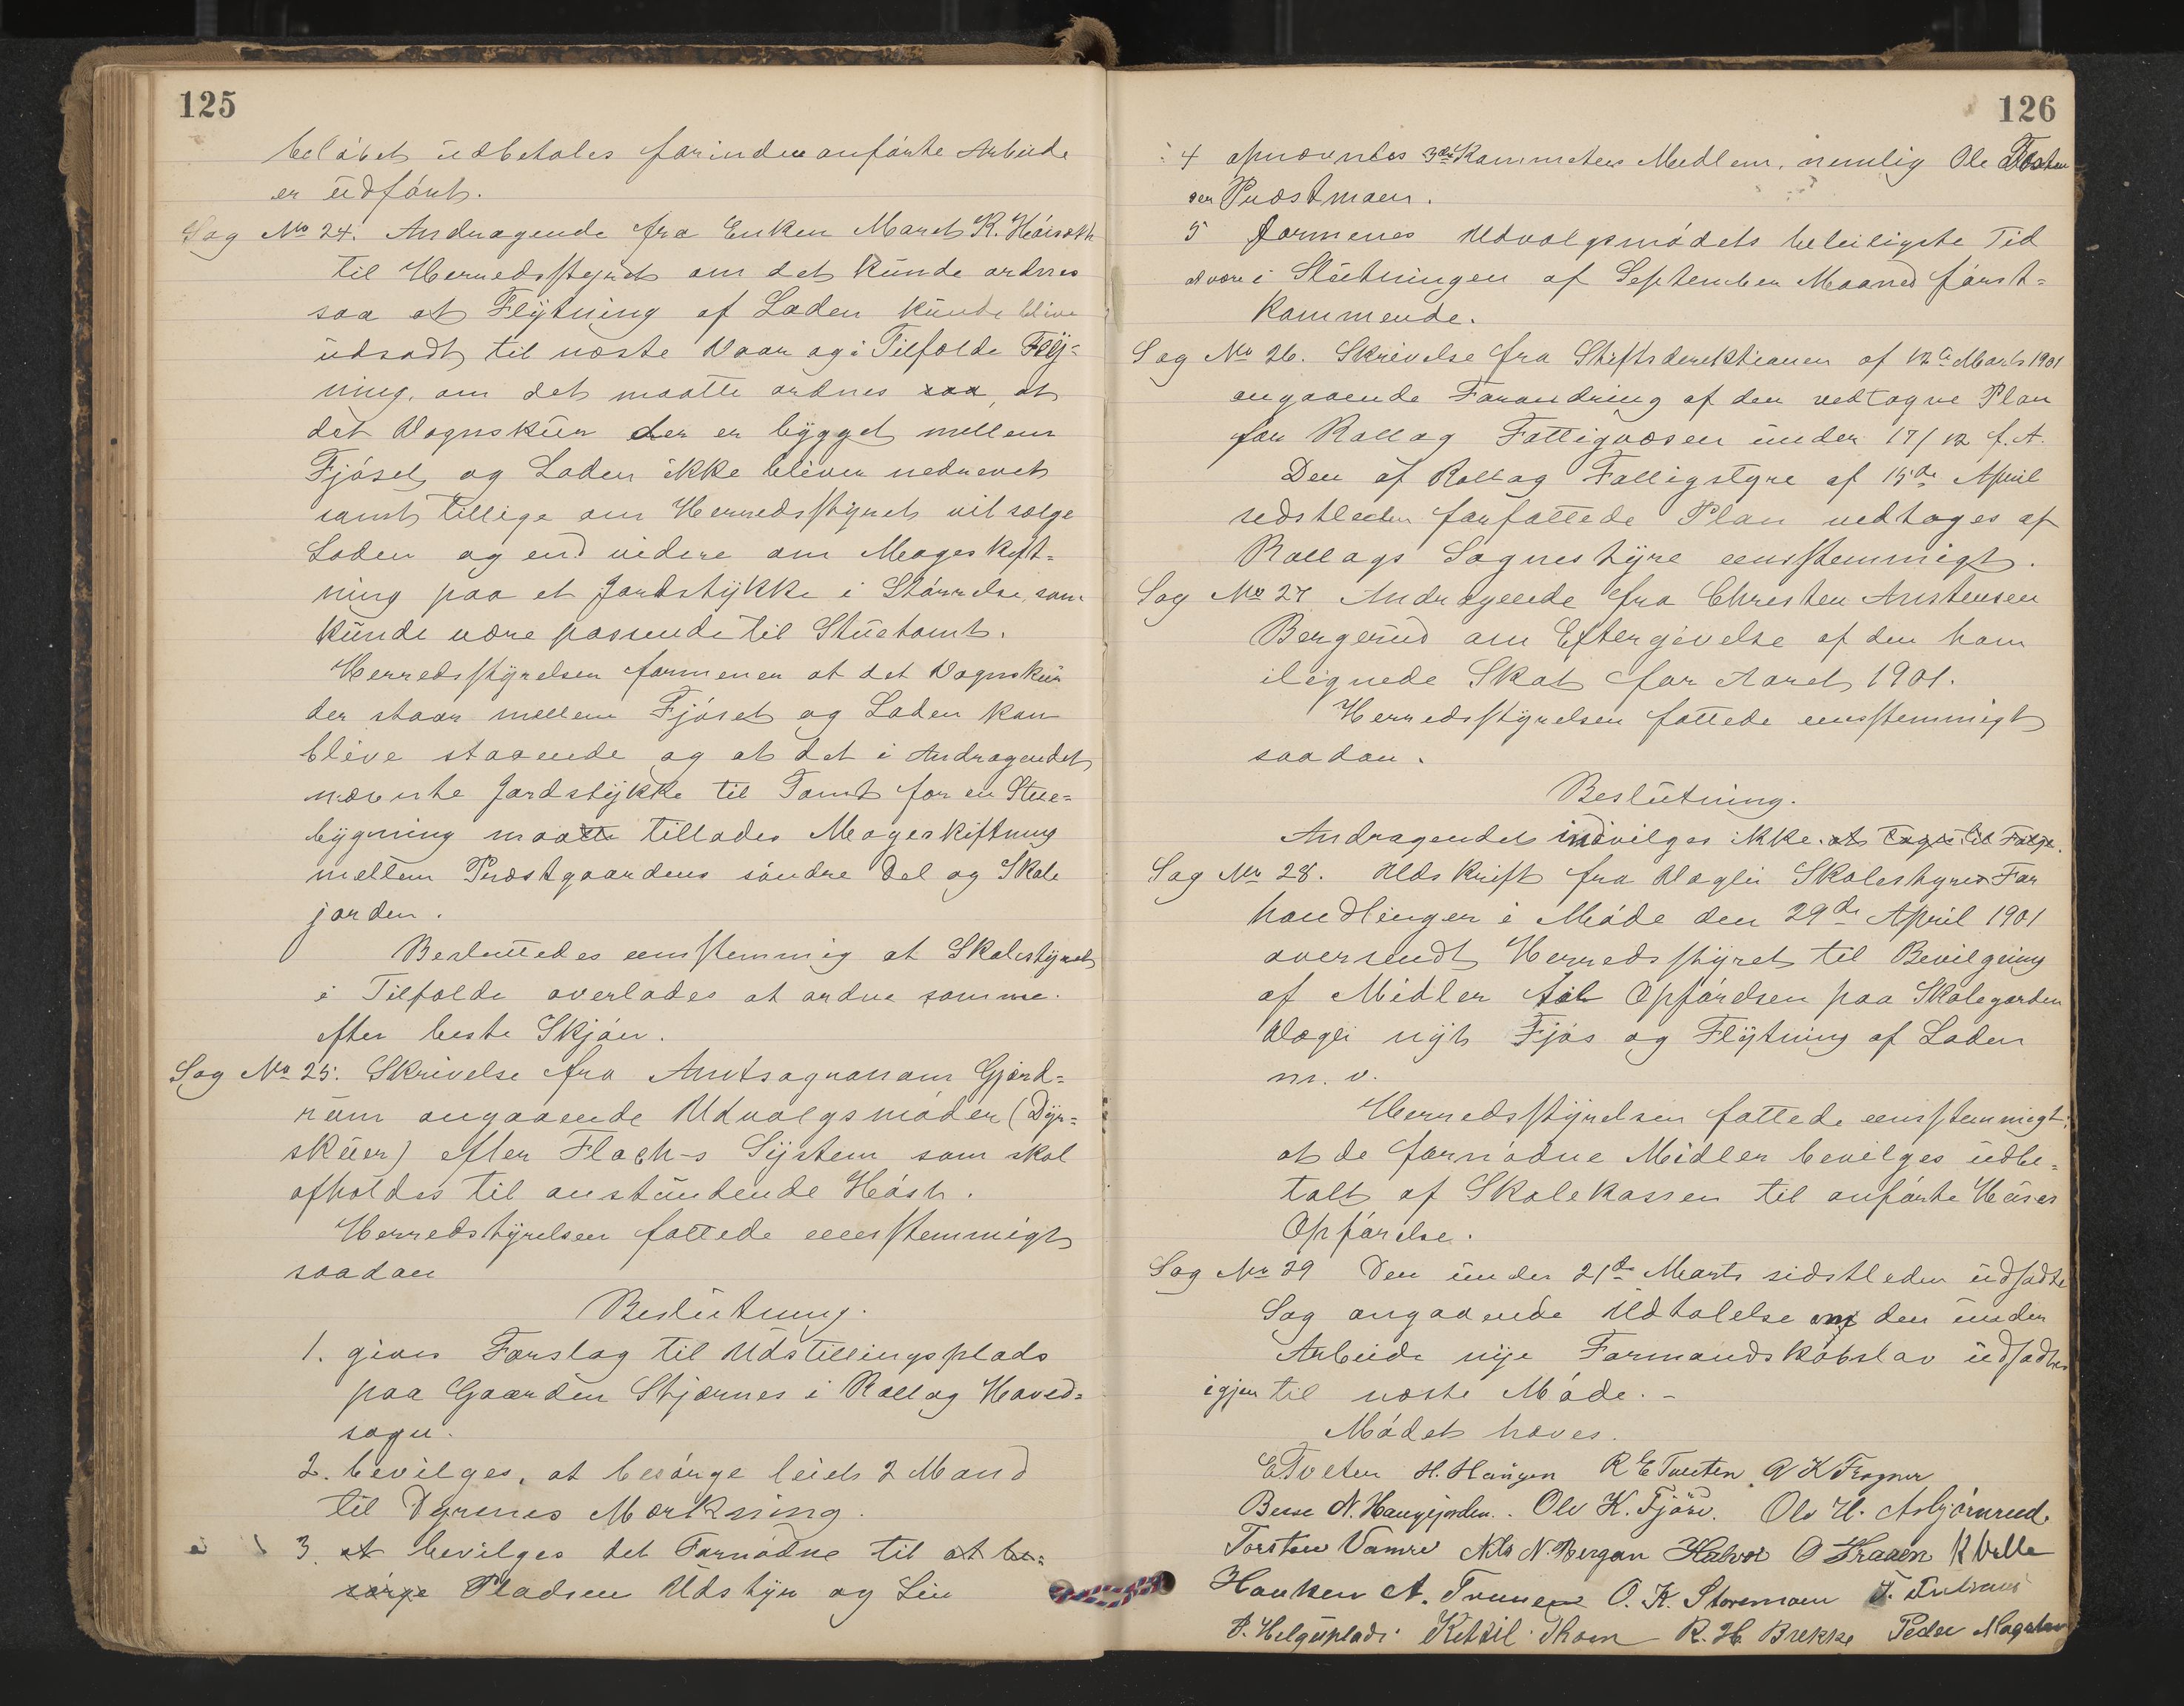 125
beløbet udbetales forinden anførte Arbeide
er udført.
Sag No 24. Andragende fra Enken Maret K.
til Herredsstyret om det kunde ordnes
saa at Flytning af Laden kunde blive
udsadt til næste Vaar og i Tilfælde Flyt=
ning, om det maatte ordnes saa, at
det Vognskur der er bygget mellem
Fjøset og Laden ikke bliver nedrevet
samt tillige om Herredsstyret vil sælge
Laden og end videre om Mageskift=
ning paa et Jordstykke i Størrelse som
kunde være passende til Stuetomt.
Herredsstyrelsen formener at det Vognskur
der staar mellem Fjøset og Laden kan
blive staaende og at det i Andragendet
nævnte Jordstykke til Tomt for en Stue=
bygning maatte tillades Mageskiftning
mellem Præstgaardens søndre Del og Skole
jorden.
Besluttedes eenstemmig at Skolestyret
i Tilfælde overlades at ordne samme
efter beste Skjøn.
Sag No 25. Skrivelse fra Amtsagronom Gjerd=
rum angaaende Udvalgsmøder (Dyr=
skuer) efter Flach-s System som skal
afholdes til anstundende Høst.
Herredstyrelsen fattede eensstemmigt
saadan
Beslutning.
1. gives Forslag til Udstillingsplads
paa Gaarden Stjærnes i Rollag Hoved=
sogn.
2. bevilges, at besørge leiet 2 Mand
til Dyrenes Mærkning.
3. at bevilges det Fornødne til at be=
sørge Pladsen Udstyr og Lin
126
4 opnævntes 3die Kommitees Medlem, nemlig Ole Tosten
sen Præstmoen.
5 formenes Udvalgsmødets beleiligste Tid
at være i Slutningen af September Maaned først=
kommende.
Sag No 26. Skrivelse fra Stiftsdirektionen af 12te Marts 1901
angaaende Forandring af den vedtagne Plan
for Rollag Fattigvæsen under 17/12 f. A.
Den af Rollag Fattigstyre af 15de April
sidstleden forfattede Plan vedtages af
Rollags Sognestyre eensstemmigt.
Sag No 27 Andragende fra Christen Anstensen
Bergerud om Eftergivelse af den ham
ilignede Skat for Aaret 1901.
Herredsstyrelsen fattede eensstemmigt
saadan.
Beslutning.
Andragendet indvilges ikke. at tages til Følge.
Sag No 28. Udskrift fra Vægli Skolestyres For
handlinger i Møde den 29de April 1901
oversendt Herredsstyret til Bevilgning
af Midler til Opførelsen paa Skolegarden
Vægli nyt Fjøs og Flytning af Laden
m. v.
Herredsstyrelsen fattede eensstemmigt:
at de fornødne Midler bevilges udbe=
talt af Skolekassen til anførte Huses
Opførelse.
Sag No 29 Den under 21de Marts sidstleden udsadte
Sag angaaende Udtalelse om den under
Arbeide nye Formandskabslov udsadtes
igjen til næste Møde. -
Møded hæves.
E Tveten H. Haugen R E Tveten O K Fragner
N. Haugejorden. Ole K. Fjøse. Ole H. Asbjørnrud.
Torsten Vamre Nils N. Bergan Halvor O Traaen K Velle
Haaken A. Trunes O. K. Storemoen T.
P. Helgeplads. Kittil Moen R. H. Brekke Peder